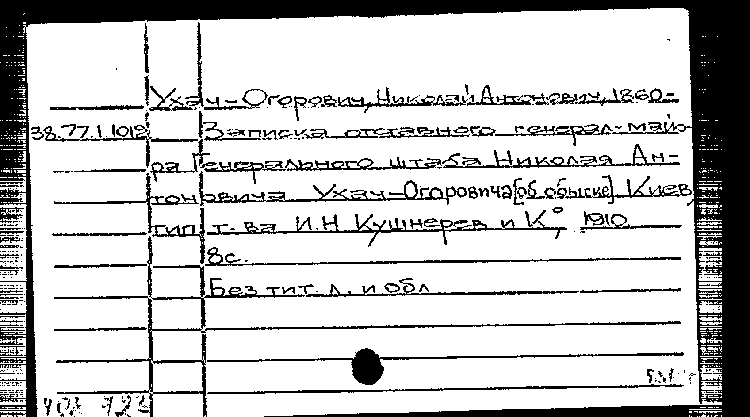 Ухач-Огорович, Николай Антонович, 1860-
38.77.1.1012 Записка отставного генерал-майо-
ра Генерального штаба Николая Ан-
тоновича Ухач-Огоровича [об обыске] Киев,
тип. т-ва И.Н. Кушнерев и К°, 1910
8с.
Без тит. л. и обл